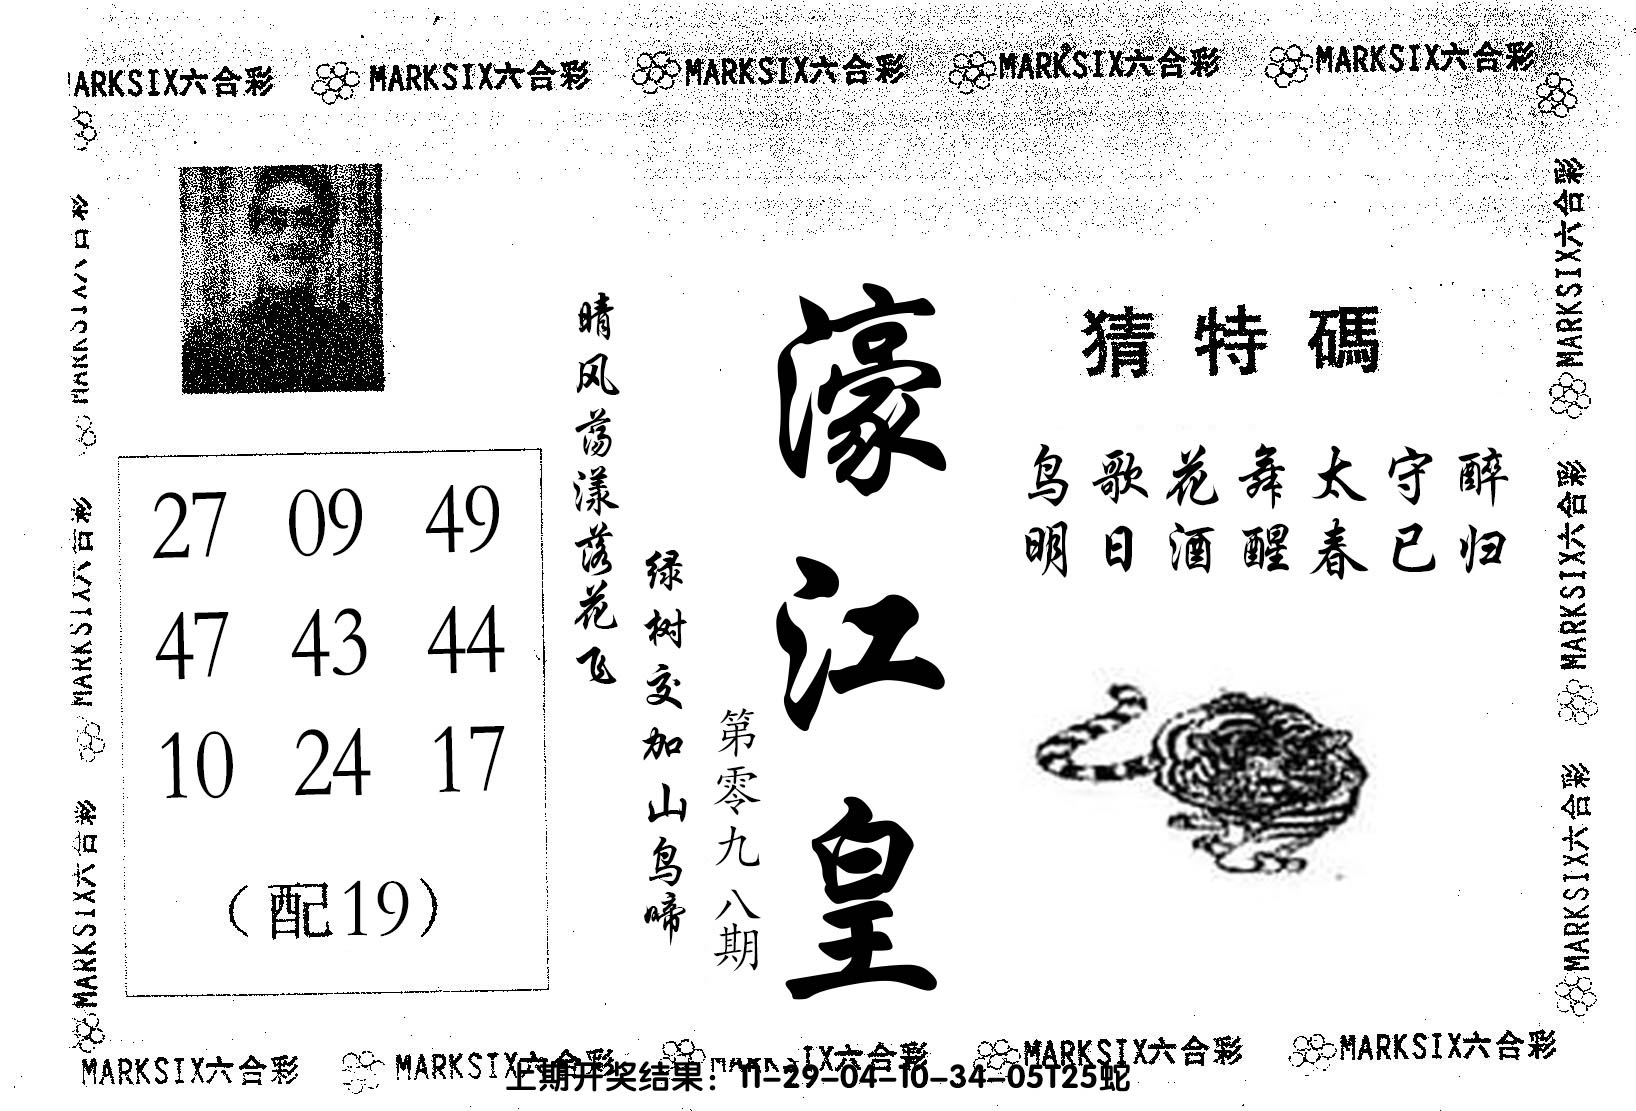 MARKSIX六合彩 MARKSIX六合彩 MARKSIX六合彩 MARKSIX六合彩 MARKSIX六合彩
猜特碼
鸟歌花舞太守醉
明日酒醒春已归
濠江皇
第零九八期
绿树交加山鸟啼
晴风荡漾落花飞
27 09 49
47 43 44
10 24 17
（配19）
MARKSIX六合彩
MARKSIX六合彩
MARKSIX六合彩
MARKSIX六合彩
MARKSIX六合彩
MARKSIX六合彩
MARKSIX六合彩 MARKSIX六合彩 IX六合彩 MARKSIX六合彩 MARKSIX六合彩
上期开奖结果：11-29-04-10-34-05T25蛇